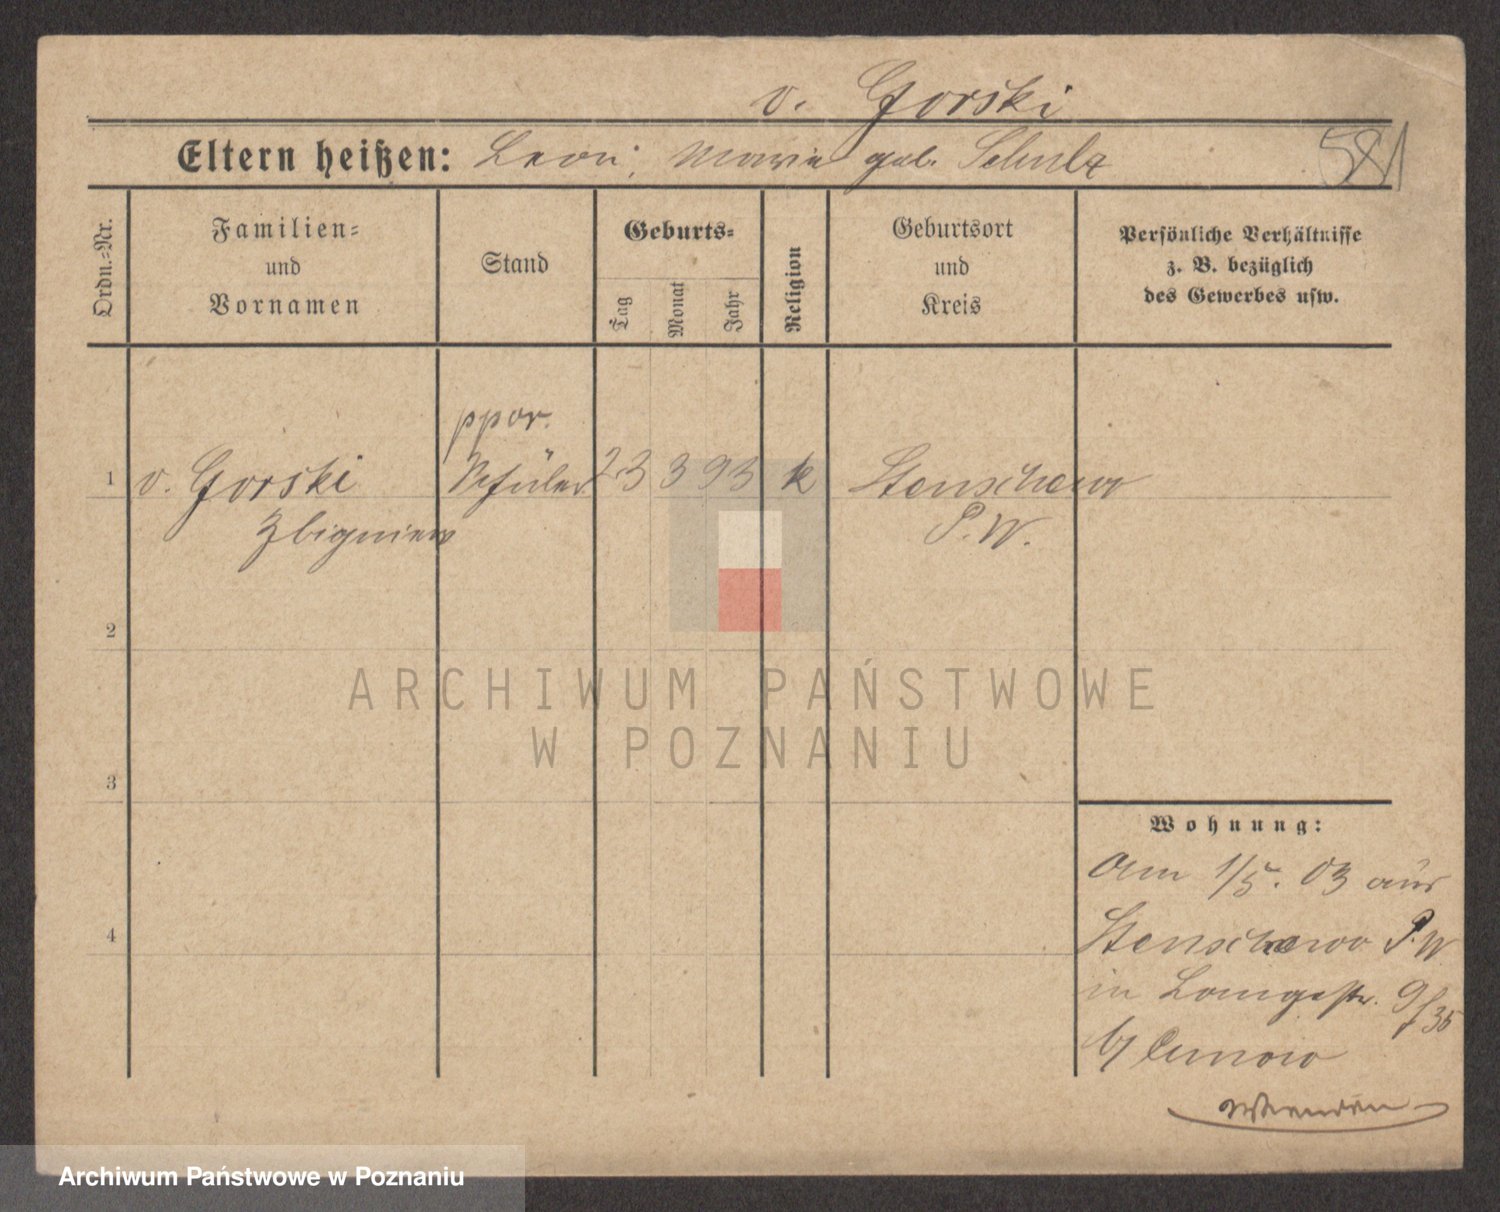 v. Gorski
Eltern heißen: Leon; Maria geb. Schulz
581
Ordn.-Nr.
Familien- und Vornamen
Stand
Geburts-
Tag
Monat
Jahr
Religion
Geburtsort und Kreis
Persönliche Verhältnisse
z. B. bezüglich
des Gewerbes usw.
ppor.
1 v. Gorski Schüler 23 3 93 k Stenschewo
Zbigniew P. W.
2
3
4
Wohnung:
Am 1/5. 03 aus
Stenschewo P. W.
in Langestr. 9
b/
Wenden
ARCHIWUM PAŃSTWOWE
W POZNANIU
Archiwum Państwowe w Poznaniu